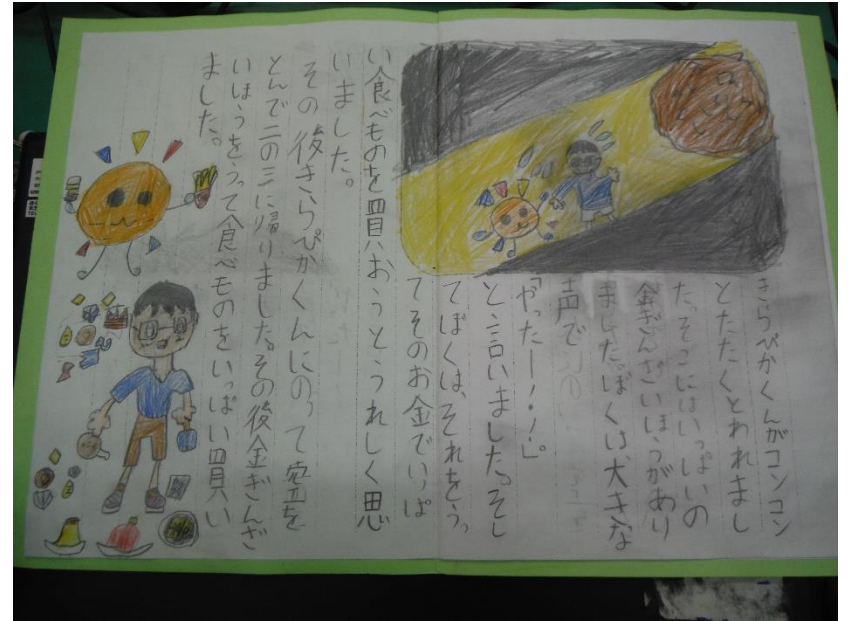 きらぴかくんがコンコン
とたたくとわれまし
た。そこにはいっぱいの
金ぎんざいほうがあり
ました。ぼくは、大きな
声で
「やったー！！」。
と言いました。そし
てぼくは、それをうっ
てそのお金でいっぱ
い食べものを買おうとうれしく思
いました。
その後きらぴかくんにのって空を
とんで二の三に帰りました。その後金ぎんざ
いほうをうって食べものをいっぱい買い
ました。